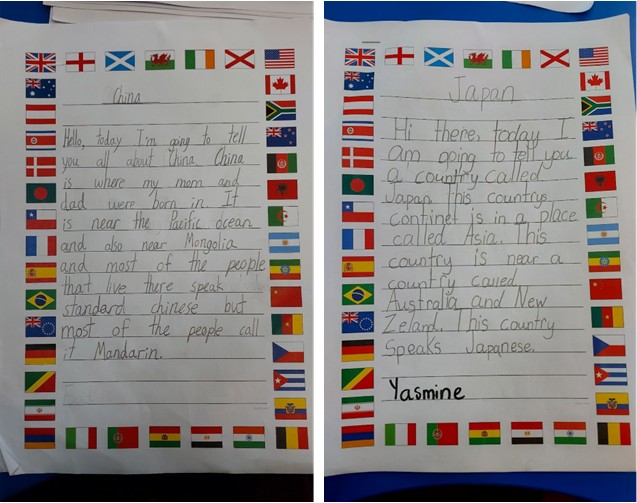 China
Hello, today I'm going to tell
you all about China. China
is where my mom and
dad were born in. It
is near the Pacific ocean
and also near Mongolia
and most of the people
that live there speak
standard chinese but
most of the people call
it Mandarin.
Japan
Hi there, today I
am going to tell you
a country called
Japan. This countrys
continet is in a place
called Asia. This
country is near a
country called
Australia and New
Zeland. This country
Speaks Japanese.
Yasmine